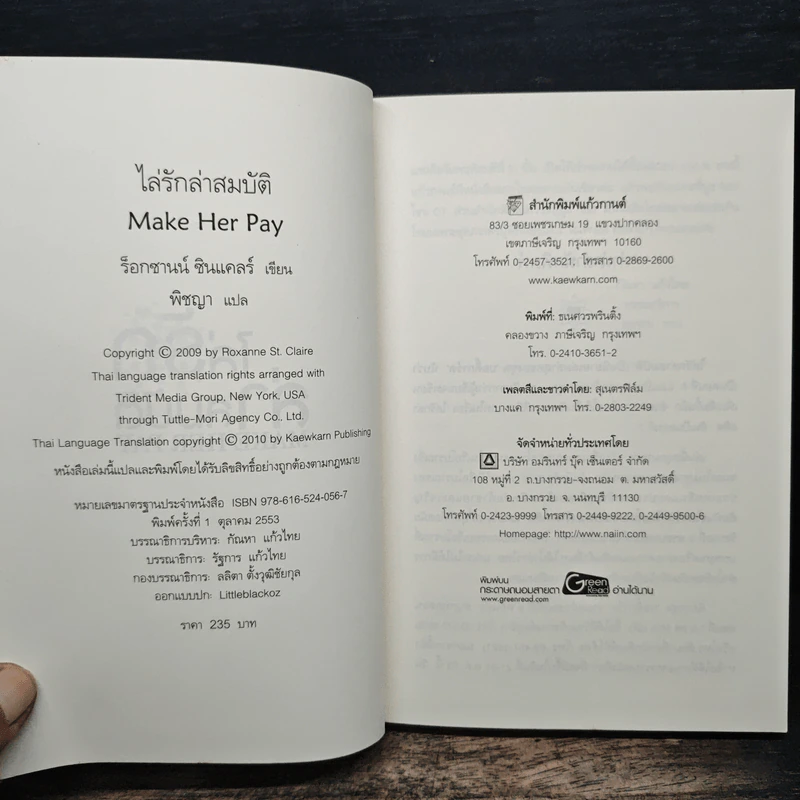 ไล่รักล่าสมบัติ
Make Her Pay
ร็อกซานน์ ซินแคลร์ เขียน
พิชญา แปล
Copyright © 2009 by Roxanne St. Claire
Thai language translation rights arranged with
Trident Media Group, New York, USA
through Tuttle-Mori Agency Co., Ltd.
Thai Language Translation copyright © 2010 by Kaewkarn Publishing
หนังสือเล่มนี้แปลและพิมพ์โดยได้รับลิขสิทธิ์อย่างถูกต้องตามกฎหมาย
หมายเลขมาตรฐานประจำหนังสือ ISBN 978-616-524-056-7
พิมพ์ครั้งที่ 1 ตุลาคม 2553
บรรณาธิการบริหาร: กัณหา แก้วไทย
บรรณาธิการ: รัฐการ แก้วไทย
กองบรรณาธิการ: ลลิตา ตั้งวุฒิชัยกุล
ออกแบบปก: Littleblackoz
ราคา 235 บาท
สำนักพิมพ์แก้วกานต์
83/3 ซอยเพชรเกษม 19 แขวงปากคลอง
เขตภาษีเจริญ กรุงเทพฯ 10160
โทรศัพท์ 0-2457-3521, โทรสาร 0-2869-2600
www.kaewkarn.com
พิมพ์ที่: ธเนศวรพรินติ้ง
คลองขวาง ภาษีเจริญ กรุงเทพฯ
โทร. 0-2410-3651-2
เพลตสีและขาวดำโดย: สุเนตรฟิล์ม
บางแค กรุงเทพฯ โทร. 0-2803-2249
จัดจำหน่ายทั่วประเทศโดย
บริษัท อมรินทร์ บุ๊ค เซ็นเตอร์ จำกัด
108 หมู่ที่ 2 ถ.บางกรวย-จงถนอม ต. มหาสวัสดิ์
อ. บางกรวย จ. นนทบุรี 11130
โทรศัพท์ 0-2423-9999 โทรสาร 0-2449-9222, 0-2449-9500-6
Homepage: http://www.naiin.com
พิมพ์บน
กระดาษถนอมสายตา Green Read อ่านได้นาน
www.greenread.com